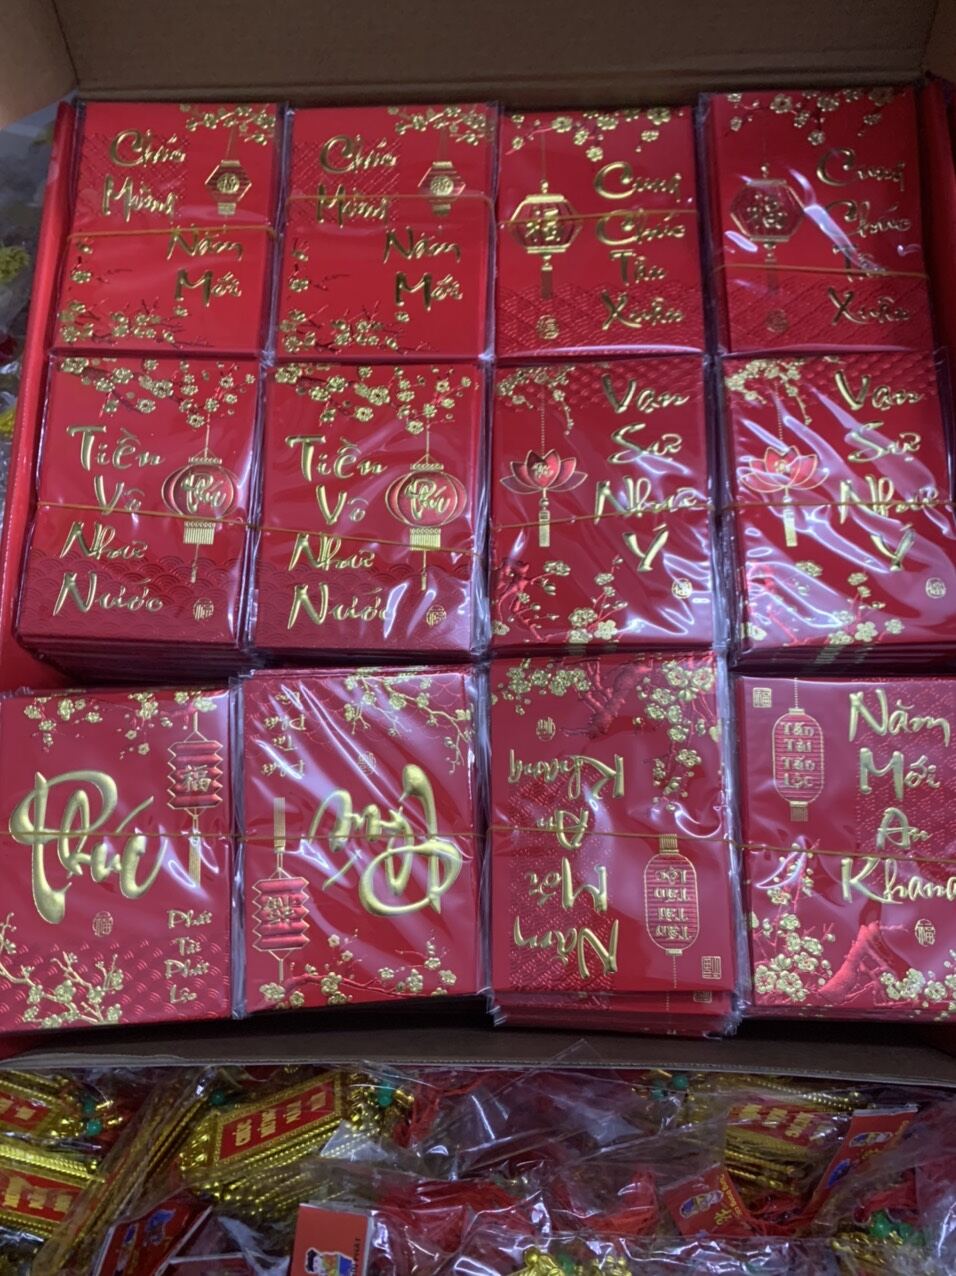 Chúc
Mừng
Năm
Mới
福
Chúc
Mừng
Năm
Mới
福
Cung
Chúc
Tân
Xuân
福
Cung
Chúc
Xuân
福
Tiền
Vô
Như
Nước
Phúc
福
Tiền
Vô
Như
Nước
Phúc
福
Vạn
Sự
Như
Ý
Vạn
Sự
Như
Ý
Phúc
福
福
Phát
Tài
Phát
Lộc
Phúc
Phát
Năm
Mới
An
Khang
Tấn
Tài
Tấn
Lộc
福
Năm
Mới
An
Khang
Tấn
Tài
Tấn
Lộc
福